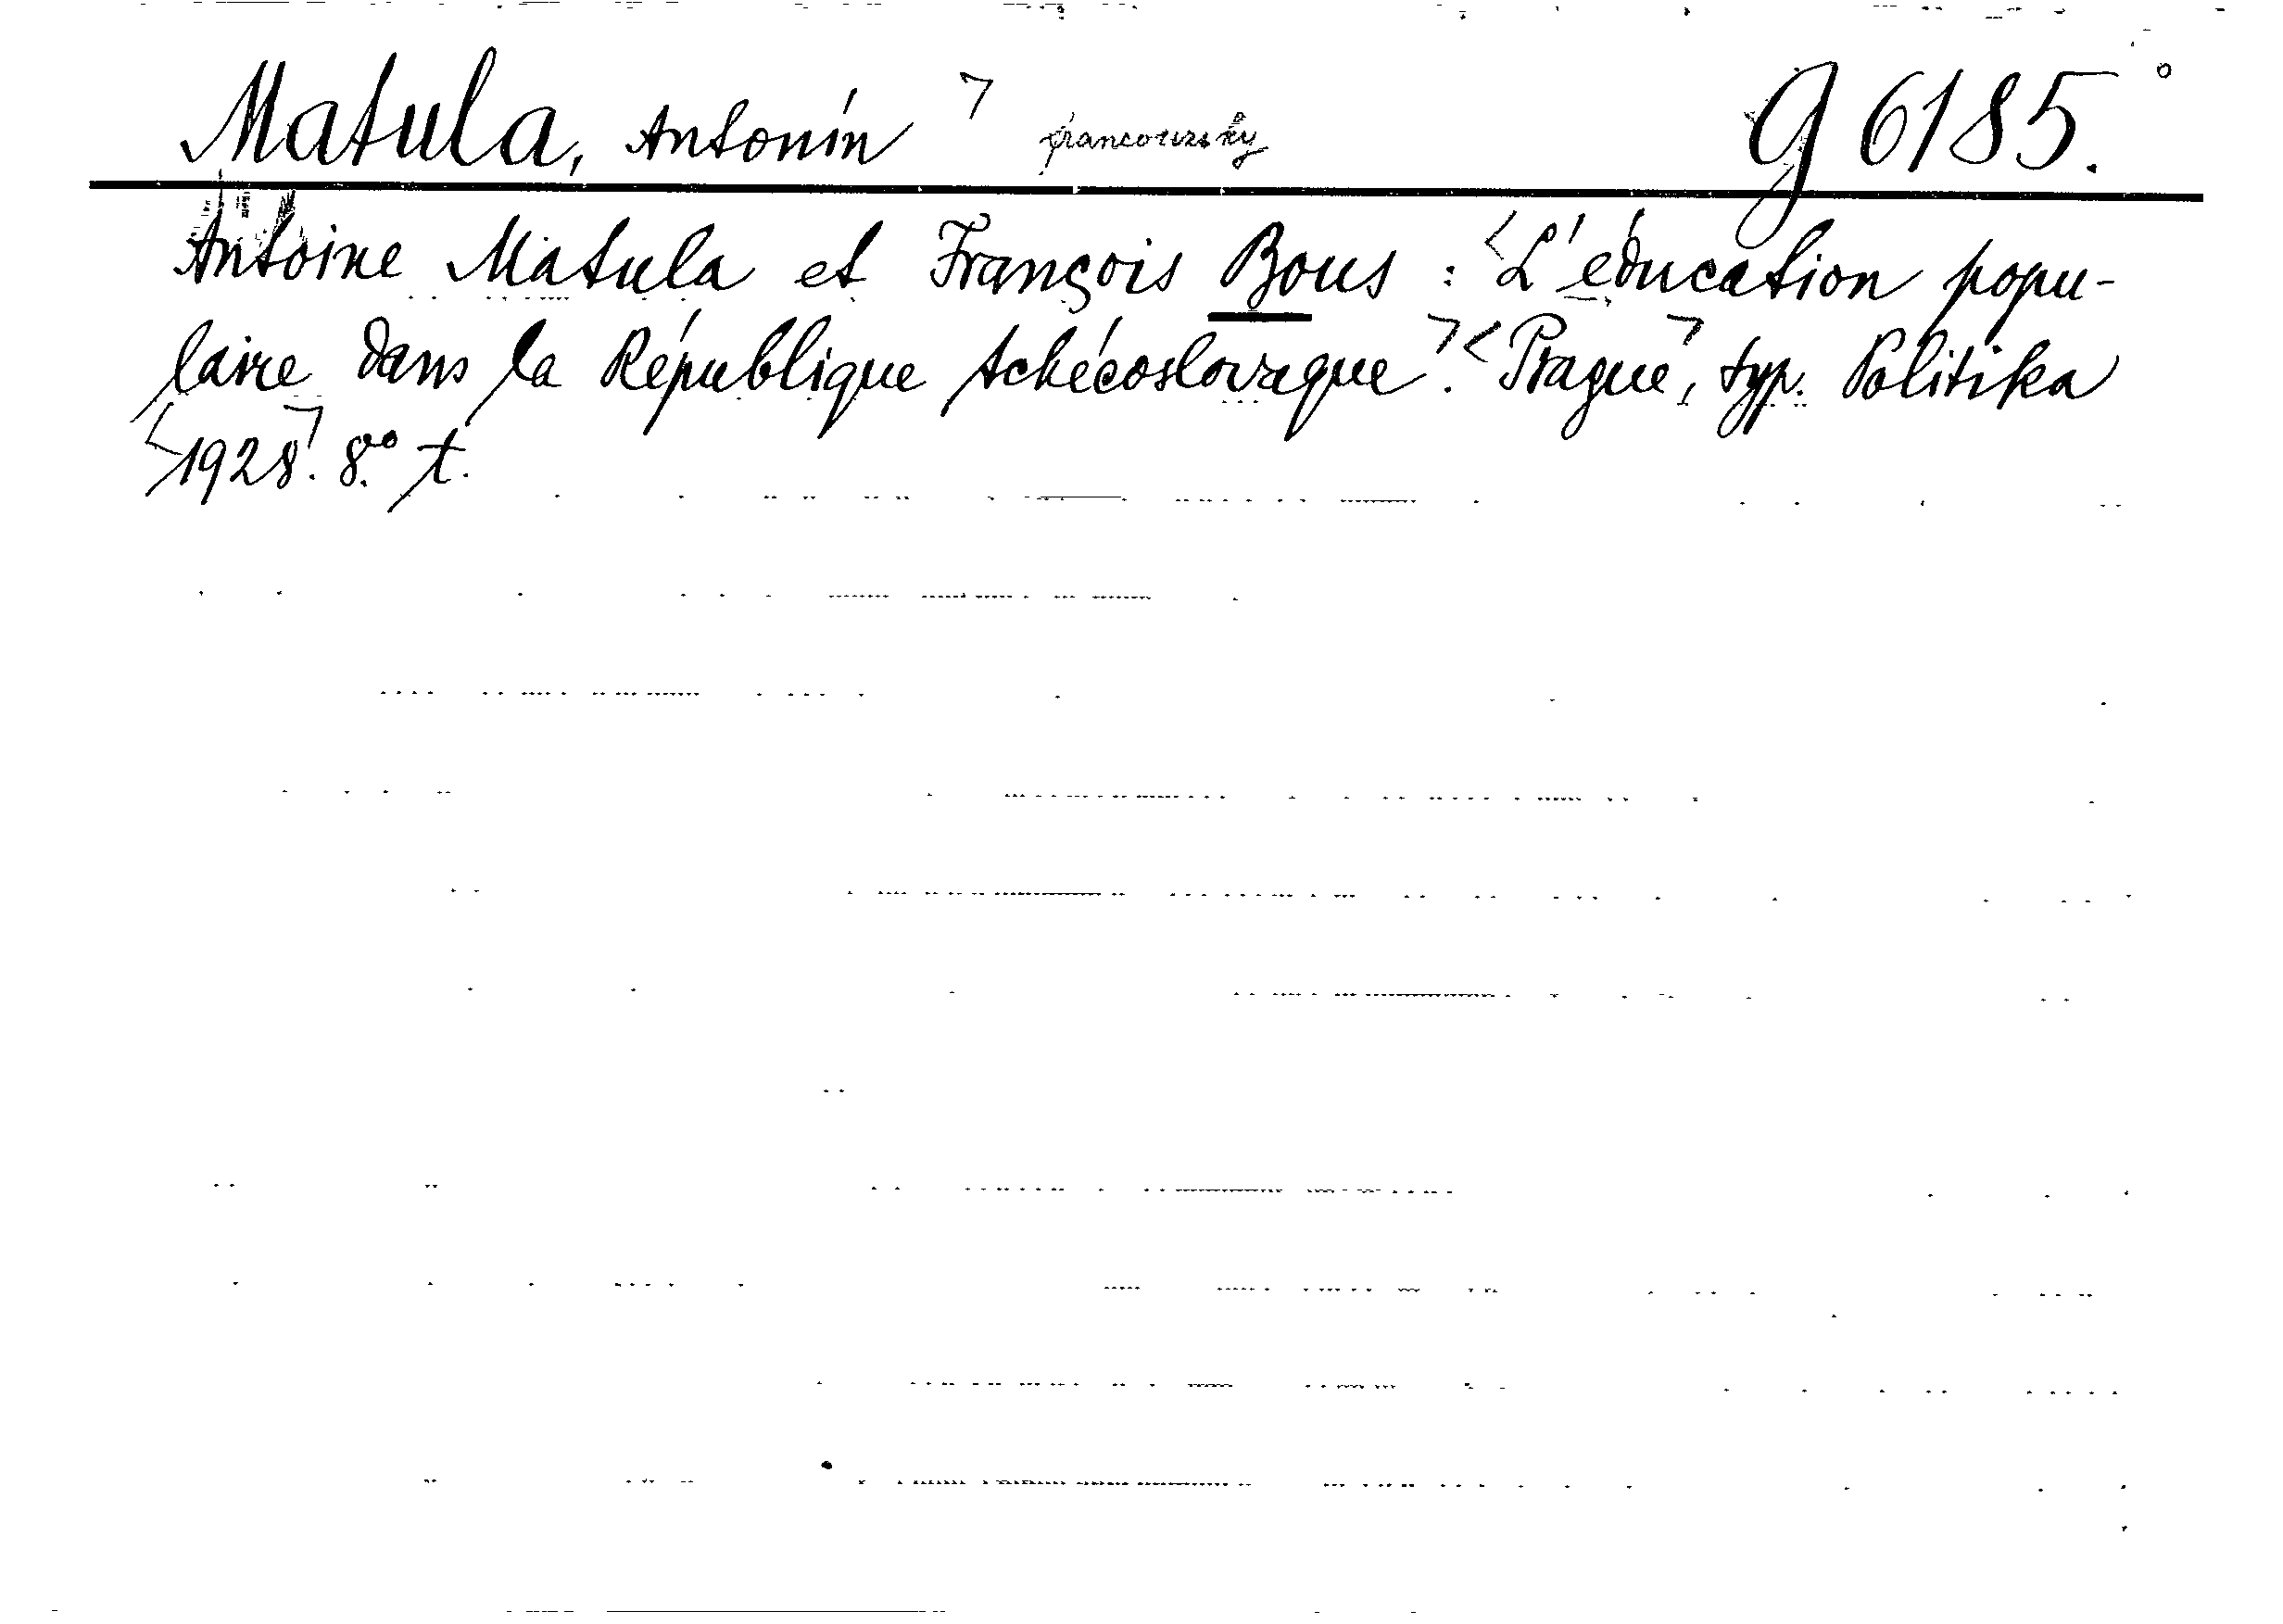 Matula, Antonín francouzsky g 6185.
Antoine Matula et François Bous : L'éducation popu-
laire dans la République tchécoslovaque. Prague, typ. Politika
1928. 8.° t.